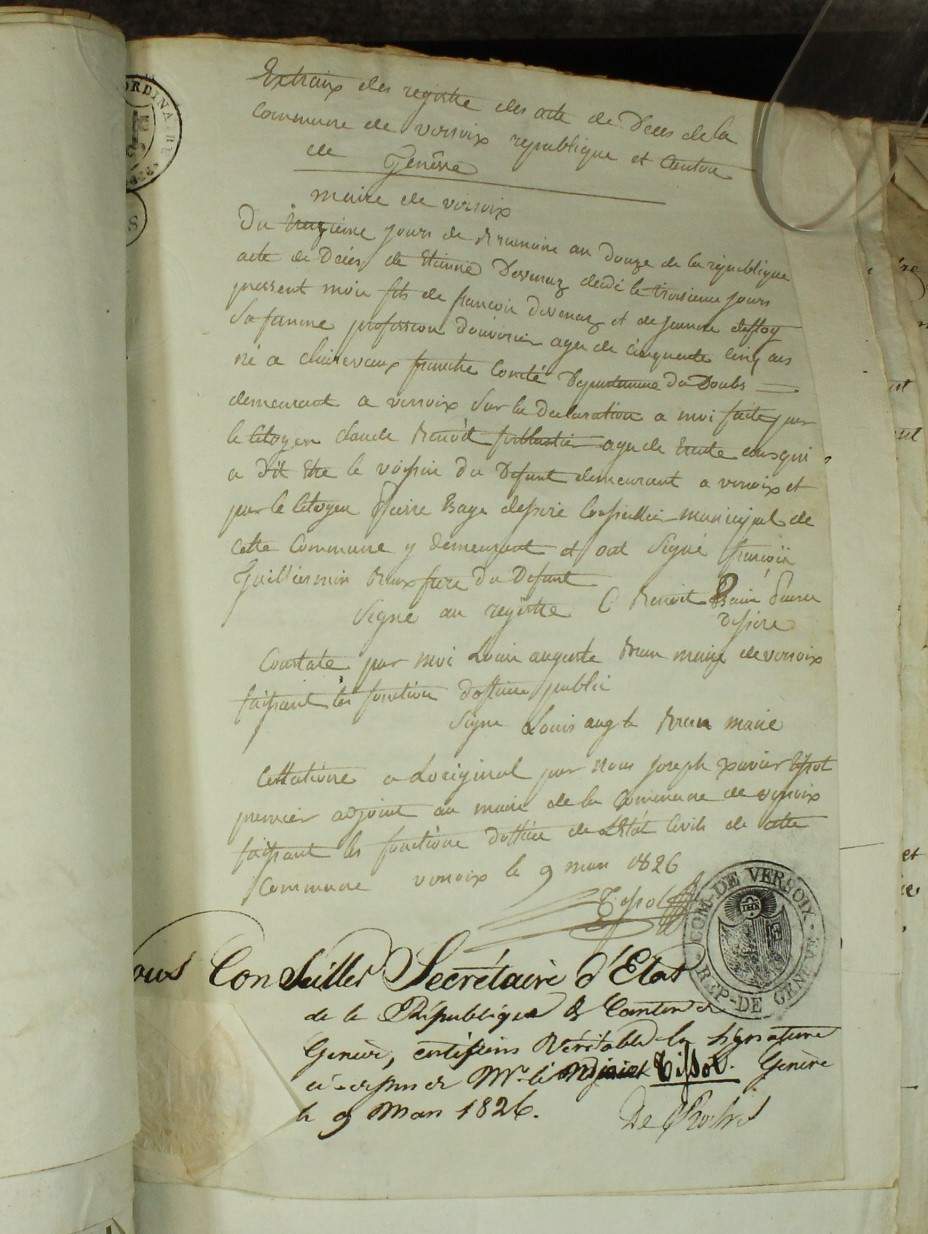 ORDINA
S
Extraix des registre des acte de Deces de la
Commune de versoix republique et Canton
de Genêve
maire de versoix
Du treizieme jours de Brumaire an douze de la republique
acte de Décés de Etienne Devenaz décédé le troisieme jours
present mois fils de francois Devenaz et de jeanne
sa famme profession d'ouvrier agé de cinquante cinq ans
né a clairevaux franche Comté Departamme du Doubs
demeurant a versoix sur la declaration a moi faite par
le Citoyen claude Benoit agé de trente ans qui
a dit etre le voissin du Defunt demeurant a versoix et
par le Citoyen Pierre desiré municipal de
cette Commune y demeurant et ont signé francoi
Guilliermin Beaux frere du Defunt
signé au registre C Benoit
Constate par moi Louis auguste Brun maire de versoix
faissant les fonction d'officier public
signe Louis aug te Brun maire
a Loriginal par Nous joseph xavier tissot
premier adjoint au maire de la Commune de versoix
faissant les fonctions d'office de L'Etat Civils de cette
Commune versoix le 9 mars 1826
Tissot
COM-DE VERSOIX-REP-DE GENEVE
Nous Conseiller Secrétaire d'Etat
de la République & Canton de
Genève, certifions Véritable la signature
ci-dessus de Mr. le Tissot. Genève
le 9 Mars 1826.
De Roches